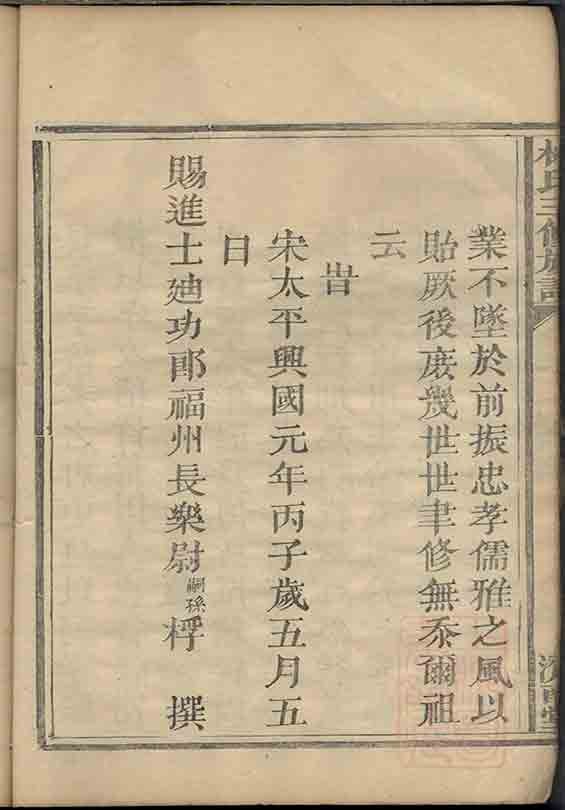 氏三修族譜
業不墜於前振忠孝儒雅之風以
貽厥後庻幾世世聿修無忝爾祖
云
旹
宋太平興國元年丙子歲五月五
日
賜進士廸功郎福州長樂尉嗣孫桴 撰